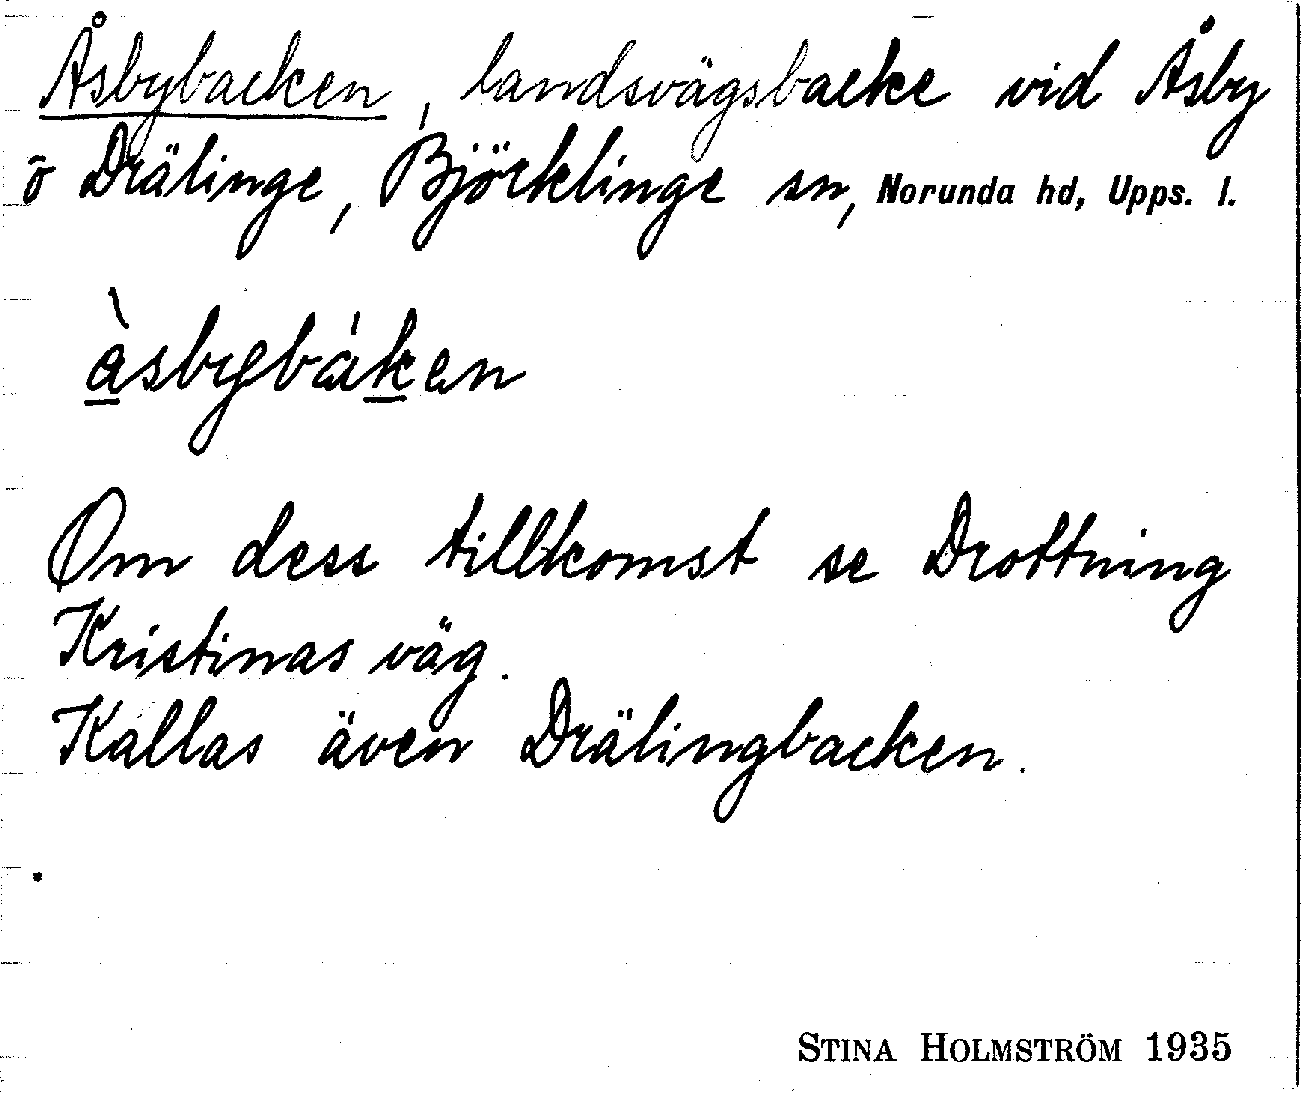 Åsbybacken, landsvägsbacke vid Åsby
ö Drälinge, Björklinge sn, Norunda hd, Upps. l.
àsbybáken
Om dess tillkomst se Drottning
Kristinas väg.
Kallas även Drälingbacken.
STINA HOLMSTRÖM 1935